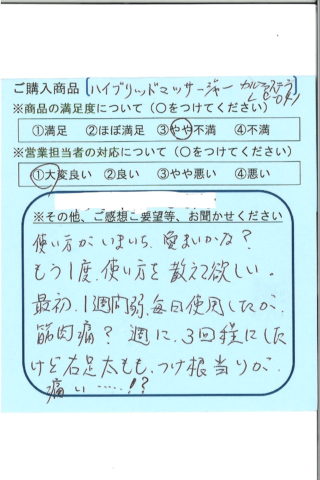 ご購入商品 ハイブリッドマッサージャー
※商品の満足度について（○をつけてください）
①満足 ②ほぼ満足 ③やや不満 ④不満
※営業担当者の対応について（○をつけてください）
①大変良い ②良い ③やや悪い ④悪い
※その他、ご感想ご要望等、お聞かせください
使い方がいまいち、重いかな？
もう1度、使い方を教えて欲しい。
最初、1週間弱、毎日使用したが、
筋肉痛？ 週に、3回程にした
けど右足太もも、つけ根当りが、
痛い……!?